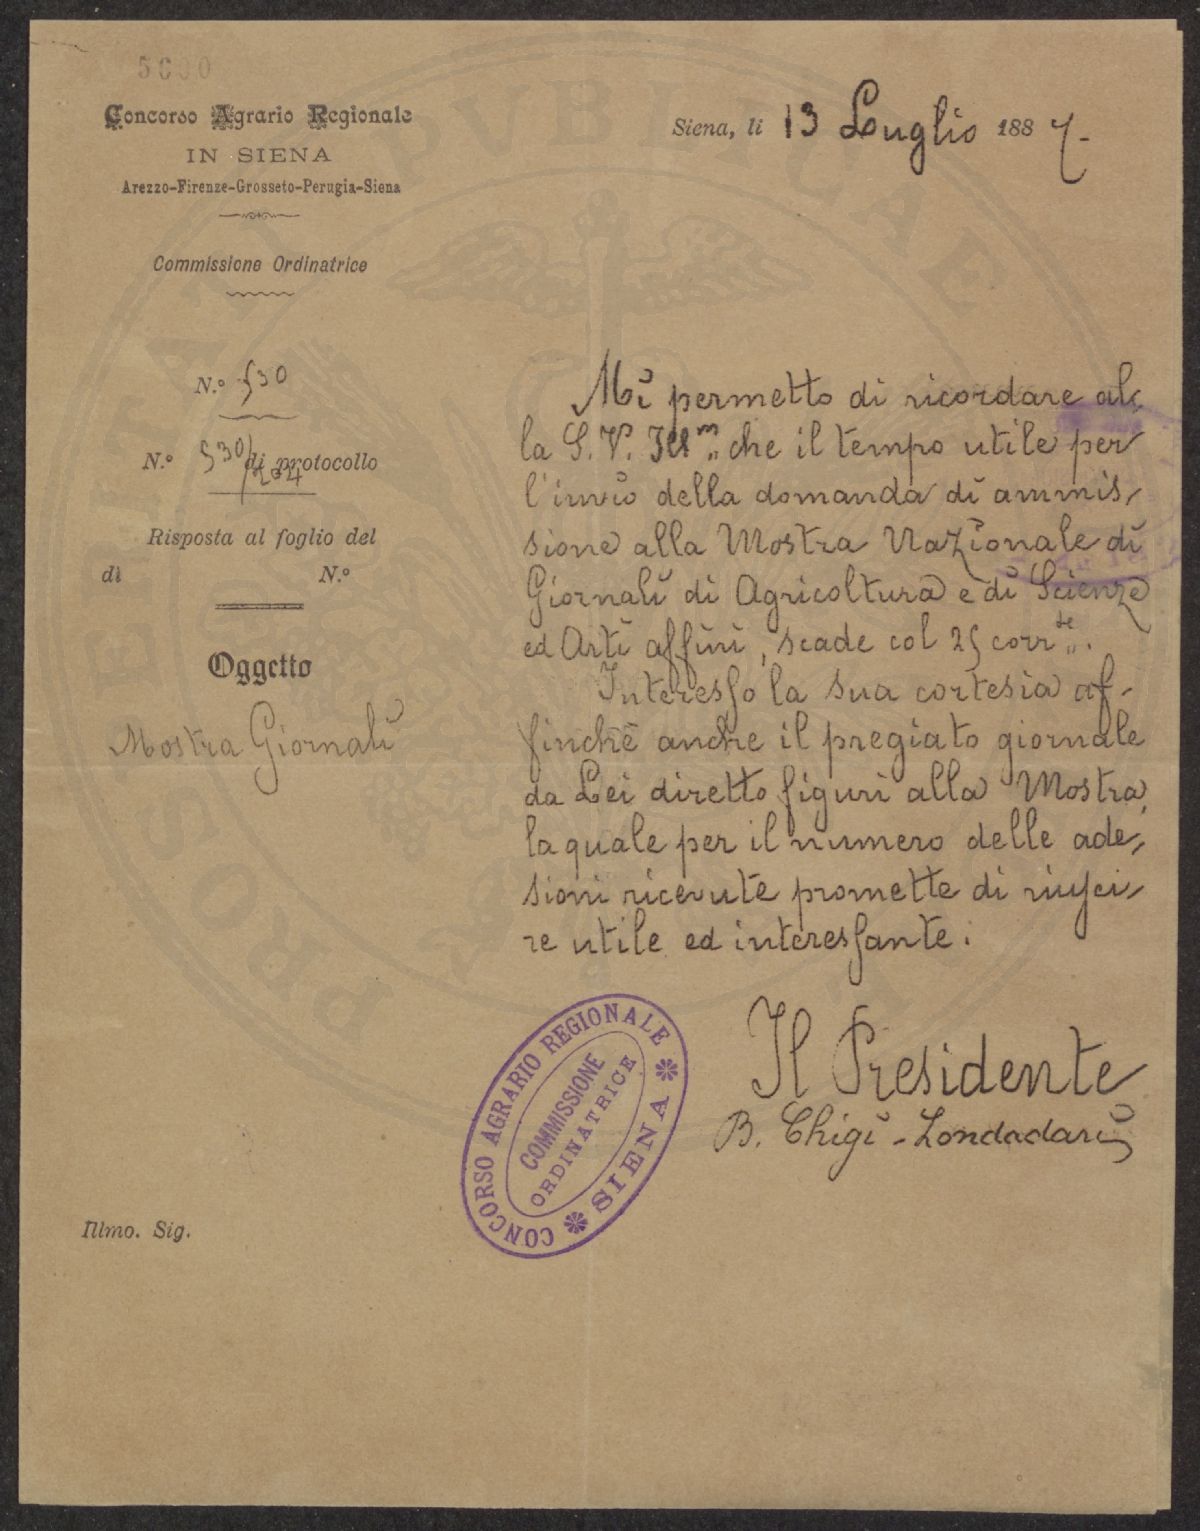 Concorso Agrario Regionale
IN SIENA
Arezzo-Firenze-Grosseto-Perugia-Siena
Commissione Ordinatrice
Siena, li 13 Luglio 1887
N.º 530
N.º 530/204 di protocollo
Risposta al foglio del
di N.º
Oggetto
Mostra Giornali
Mi permetto di ricordare al-
la S. V. Ill.ma che il tempo utile per
l'invio della domanda di ammis-
sione alla Mostra Nazionale di
Giornali di Agricoltura e di Scienze
ed Arti affini, scade col 25 corr.te.
Interesso la sua cortesia af-
finchè anche il pregiato giornale
da Lei diretto figuri alla Mostra,
la quale per il numero delle ade-
sioni ricevute promette di riusci-
re utile ed interessante.
Il Presidente
B. Chigi-Zondadari
CONCORSO AGRARIO REGIONALE
SIENA
COMMISSIONE
ORDINATRICE
Illmo. Sig.